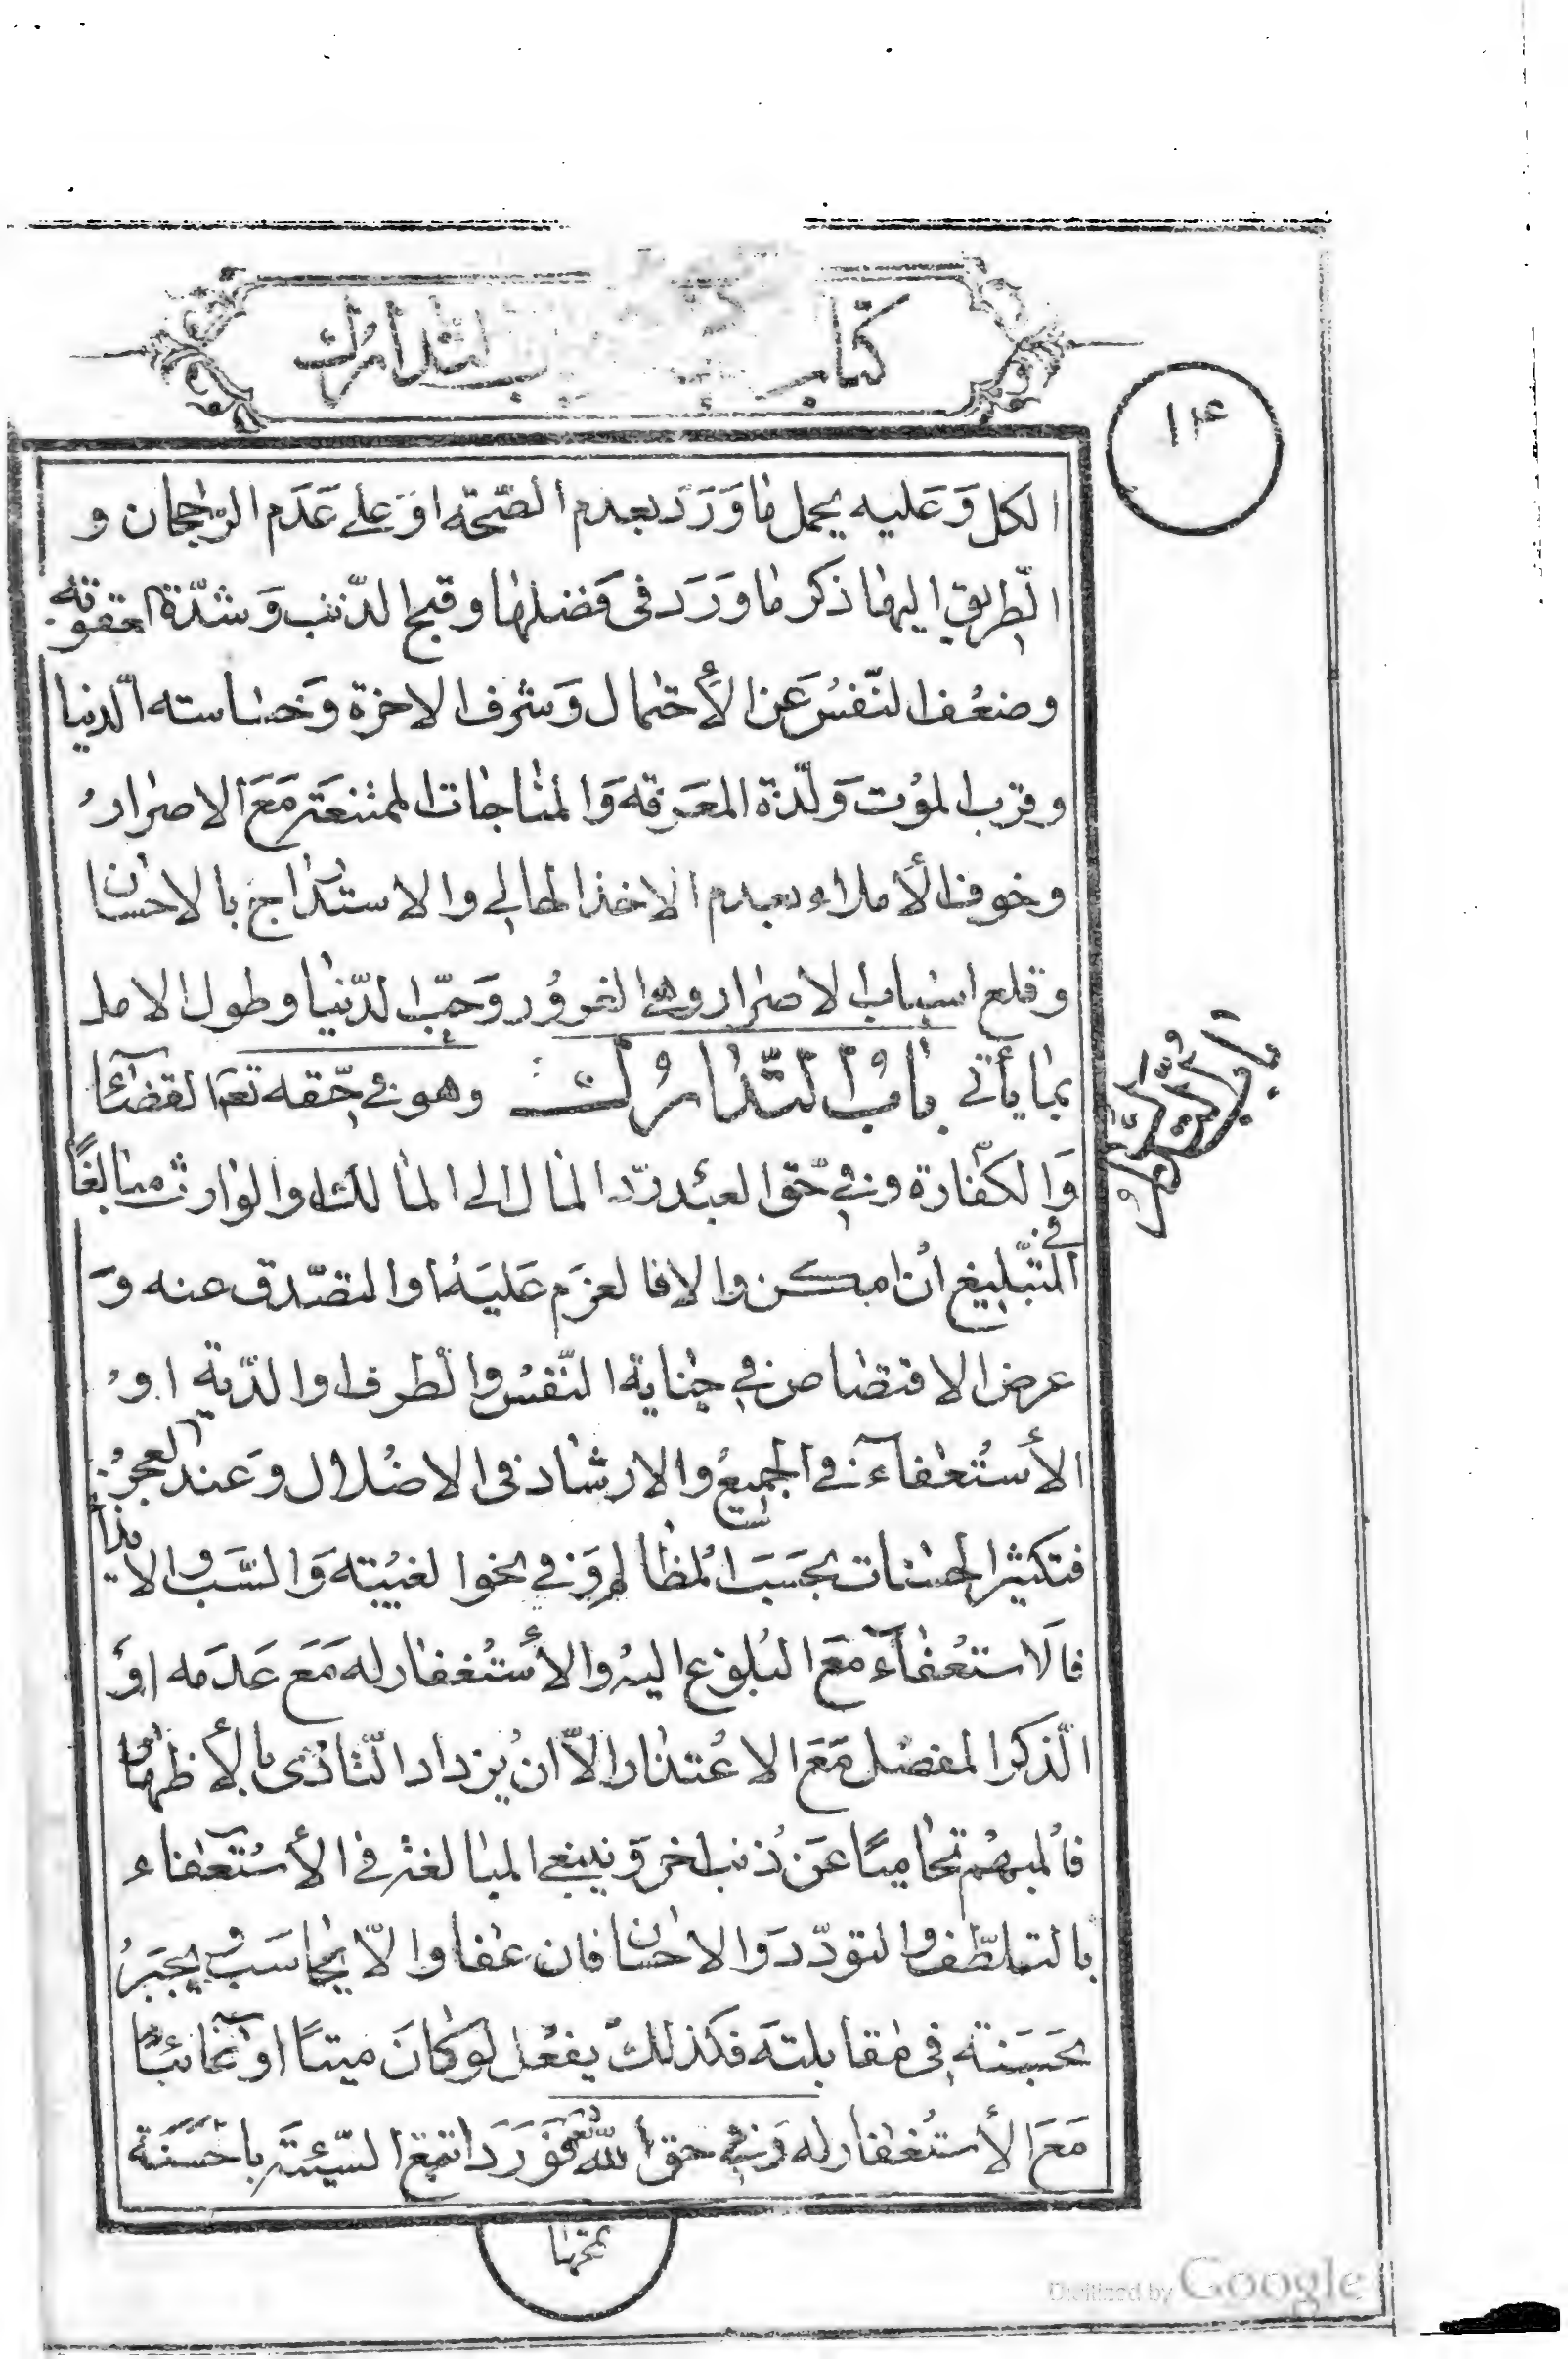 كتاب باب التدارك
١٣۴
الكل وَعَليه يحمل مٰا وَرَدَ بعدم الصّحّة اوَ علٰى عَدَم الرّجحان و
الطّريق اليهٰا ذكر مٰا وَرَدَ فى فَضلهٰا و قبح الذّنب وَ شدّة العقوبة
و ضعُف النّفسُ عَن الأحتمال وَ شرف الاخرة وَ خسٰاسته الّدنيا
و قرب الموُت وَ لّذة المعَرفه وَ المنٰاجٰات الممتنعَة مَعَ الاصرٰار
و خوف الأملاء بعدم الاخذ الحالى و الاستدرٰاج بالاحسٰان
و قلع اسبٰاب الاصرٰار و هى الغروُر وَ حبّ الدّنيٰا و طول الامل
بمٰا يأتى بٰابُ التّدٰارُك وهو فى حّقه تعَ القضٰآءُ
وَ الكفّارة و فى حّق العبُد ردّ المٰال الى المٰالك او الوٰارث مبٰالغًا
فى التّبليغ انُ امكن و الا فالعزَم عَليَهُ او التصّدق عنه وَ
عرض الاقتصٰاص فى جنٰاية النّفسُ و الطرف او الدّية اوُ
الأستُعفآء فى الجميعُ و الارشٰاد فى الاضُلال وَ عند العجزُ
فتكثير الحسنات بحَسَب المُظٰالم وَ فى نحو الغيُبته وَ السَّب و الايذآء
فالاستعُفآء مَعَ البُلوغ اليهُ و الأستُغفٰار له مَعَ عَدَمه اوَ
الّذكر المفصّل مَعَ الاعُتذٰار الاّ انُ يُزداد الّتاذى بالأظهٰار
فالمُبهُم تحٰاميًا عَنُ ذنب اخر وَ ينبغى المبٰالغة فى الأستُعفٰاء
بالتلطّف و التودّد وَ الاحسٰان فان عفا و الاّ يحاسَب و يجبَرُ
بحَسَنة فى مقٰابلته فكذلك يفعُل لو كٰانَ ميتًا او غٰآئبًا
مَعَ الأستُغفٰار له وَ فى حق اللّٰه تعَ فَوَرَدَ اتبع السّيئة باحَسَنَة
تمحهٰا
باب التدارك
Digitized by Google